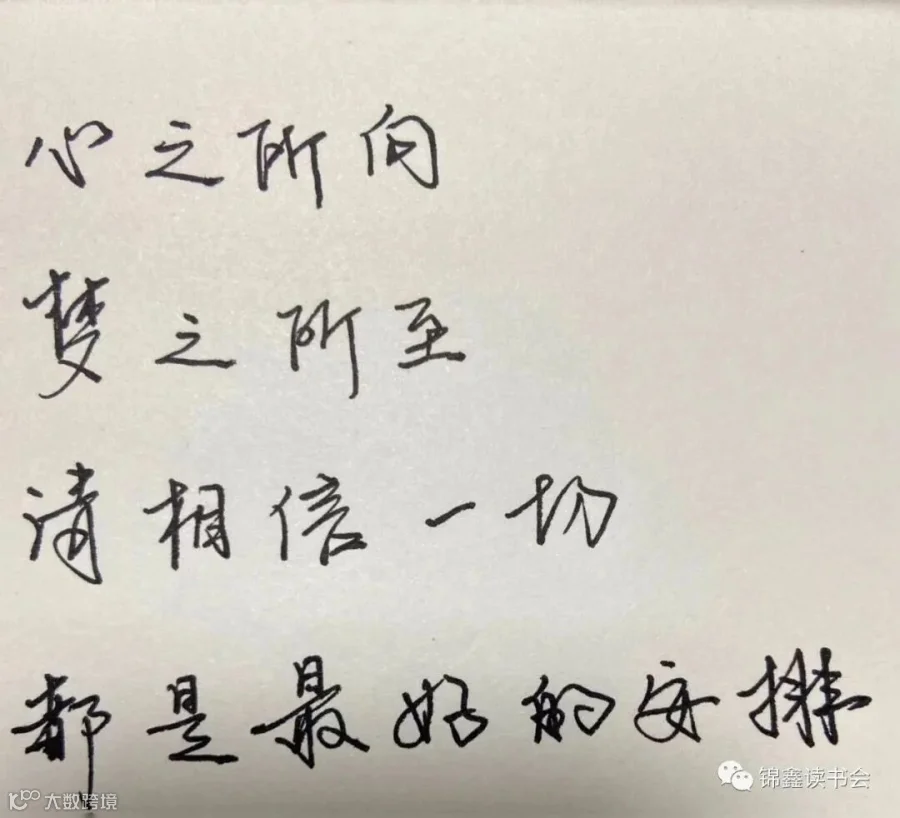 心之所向
梦之所至
请相信一切
都是最好的安排
锦鑫读书会
大数跨境